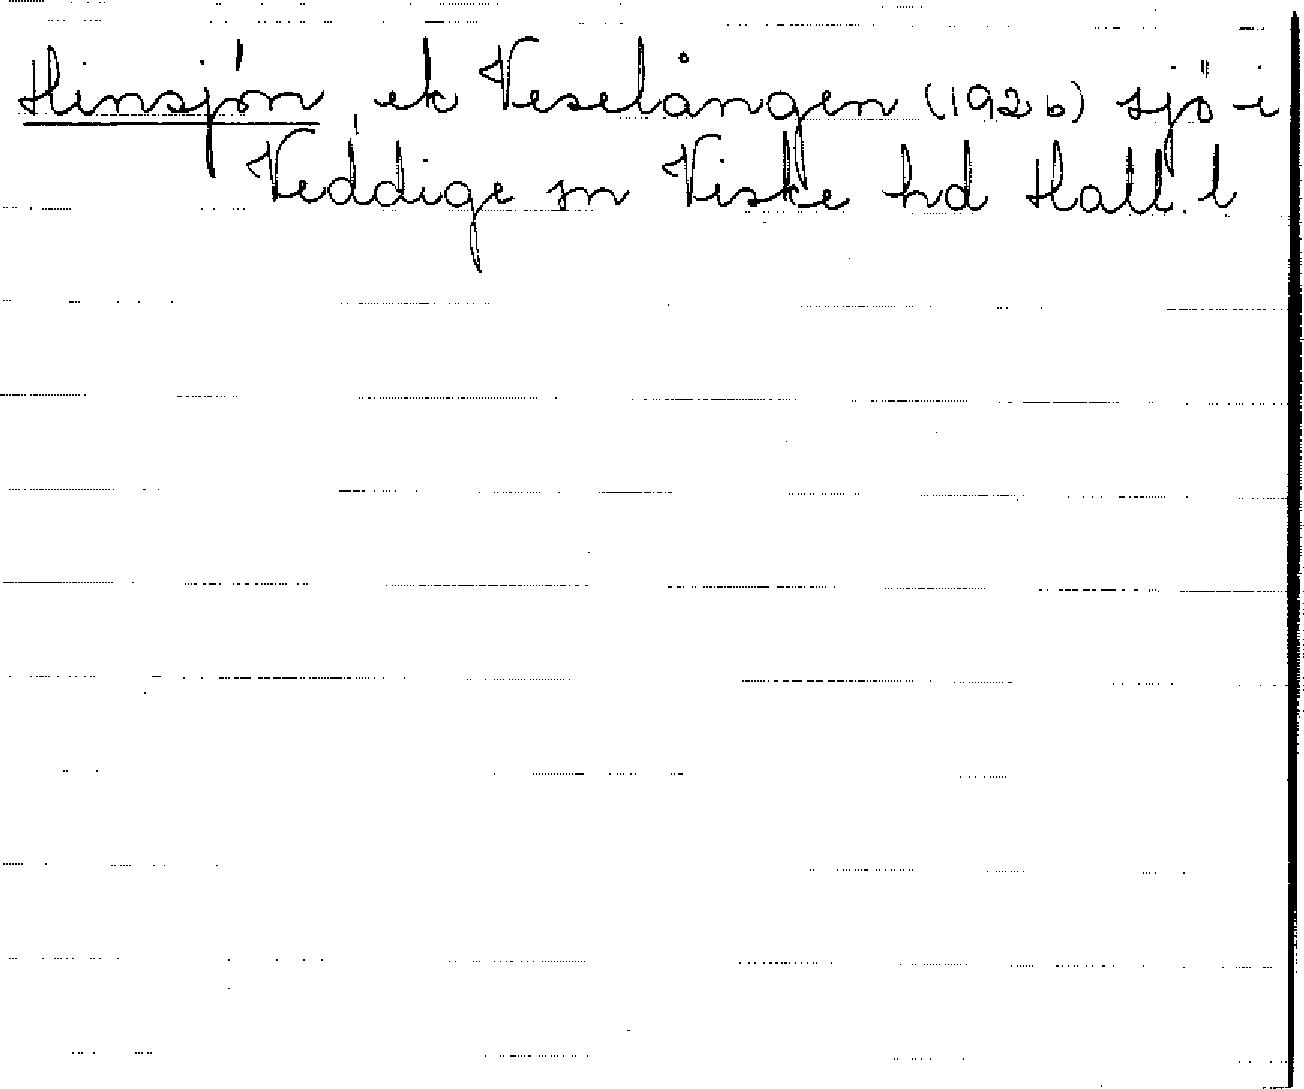 Hinsjön, ek Veselången (1926) sjö i
Veddige sn Viske hd Hall. l